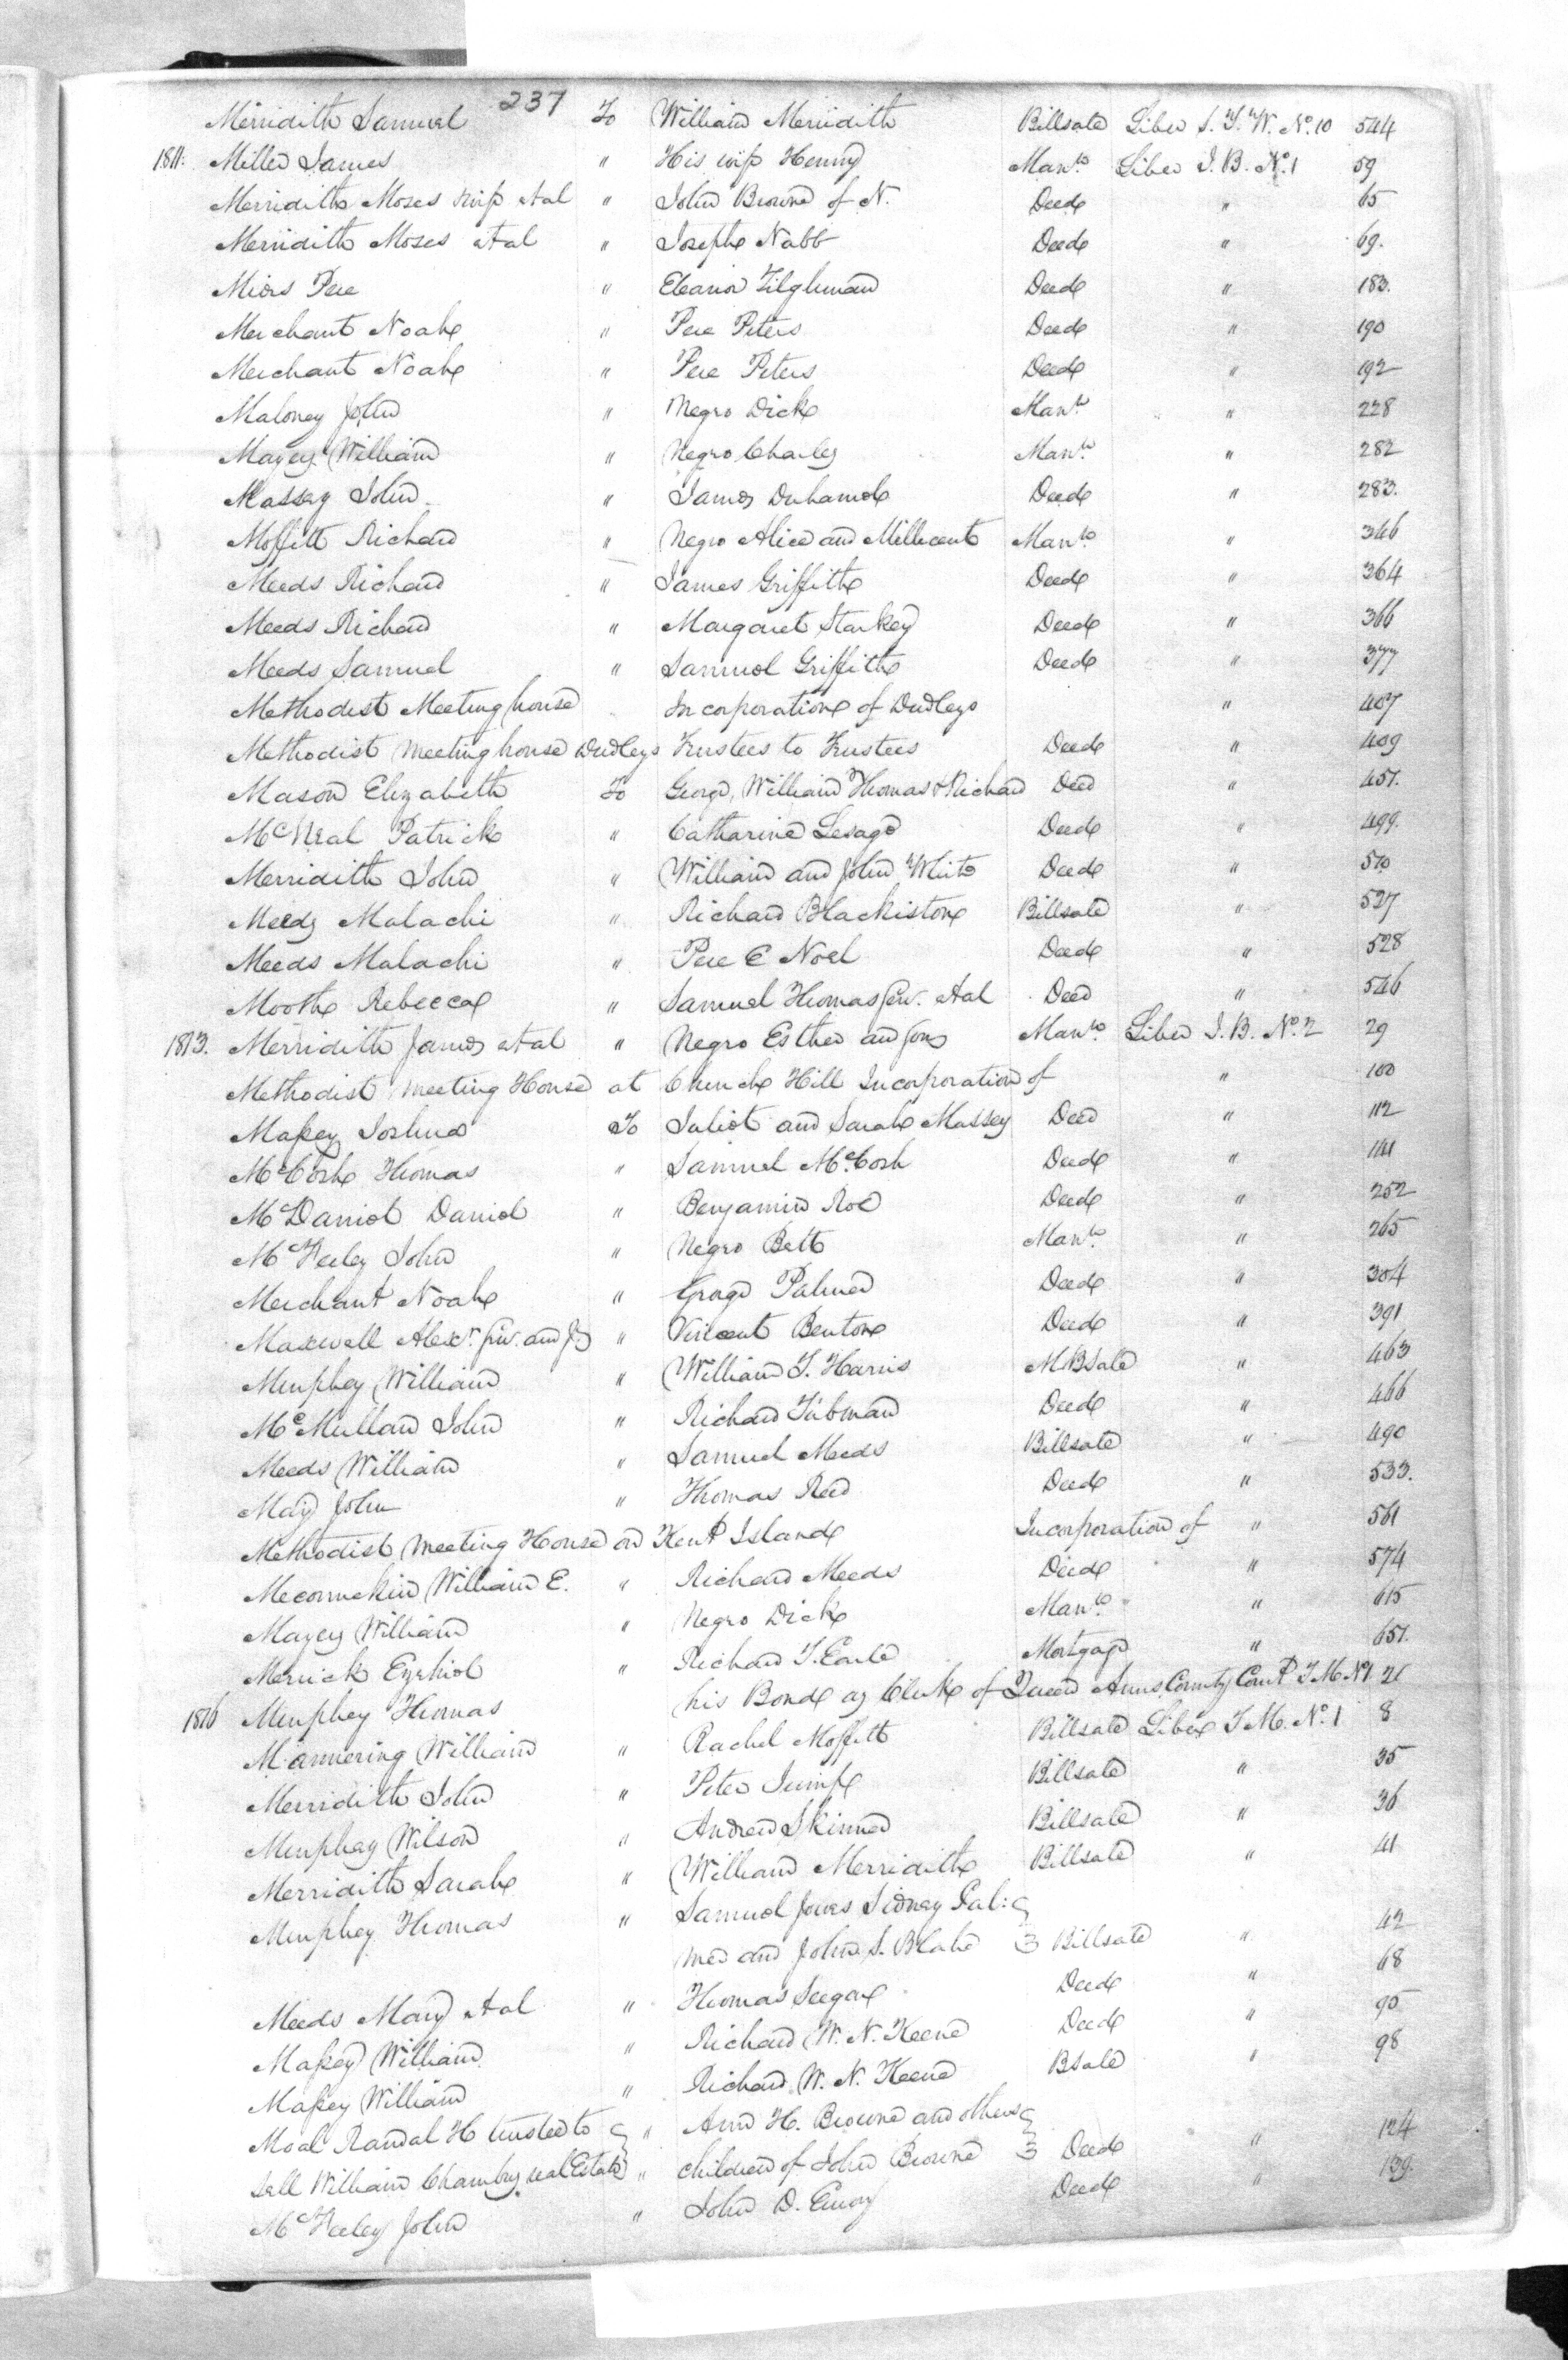 237
Merridith Samuel To William Merridith Billsale Liber S.T.W. No. 10 544
1811: Miller James " His wife Henny Manto Liber I.B. No. 1 59
Merridith Moses wife etal " John Browne of N. Deed " 65
Merridith Moses etal " Joseph Nabb Deed " 69.
Miers Pere " Eleanor Tilghman Deed " 183.
Merchant Noah " Pere Peters Deed " 190
Merchant Noah " Pere Peters Deed " 192
Maloney John " Negro Dick Manto " 228
Mayers William " Negro Charles Manto " 282
Massey John " James Duhamel Deed " 283.
Moffitt Richard " Negro Alice and Millicent Manto " 346
Meeds Richard " James Griffith Deed " 364
Meeds Richard " Margaret Starkey Deed " 366
Meeds Samuel " Samuel Griffith Deed " 377
Methodist Meeting house Incorporation of Dudleys " 407
Methodist meeting house Dudleys Trustees to Trustees Deed " 409
Mason Elizabeth To George, William Thomas & Richard Deed " 451.
McNeal Patrick " Catharine Lesage Deed " 499.
Merridith John " William and John White Deed " 510
Meeds Malachi " Richard Blackiston Billsale " 527
Meeds Malachi " Pere E Noel Deed " 528
Mooth Rebecca " Samuel Thomas Junr. etal Deed " 546
1813. Merridith James etal " Negro Esther and sons Manto Liber I.B. No. 2 29
Methodist meeting House at Church Hill Incorporation of " 100
Maßey Joshua To Juliet and Sarah Massey Deed " 112
McCosh Thomas " Samuel McCosh Deed " 141
McDaniel Daniel " Benjamin Roe Deed " 252
McFeeley John " Negro Bett Manto " 265
Merchant Noah " George Palmer Deed " 304
Maxwell Alexr. Junr. and " Vincent Benton Deed " 391
Murphey William " William T. Harris M Bsale " 463
McMullan John " Richard Tubman Deed " 466
Meeds William " Samuel Meeds Billsale " 490
May John " Thomas Reed Deed " 533.
Methodist meeting House on Kent Island Incorporation of " 561
Meconnekin William E. " Richard Meeds Deed " 574
Mayers William " Negro Dick Manto " 615
Merrick Ezekiel " Richard T. Earle Mortgage " 651.
1816 Murphey Thomas his Bond as Clerk of Queen Anns County Court T M No 1. 21
Mannering William " Rachel Moffitt Billsale Liber T M. No. 1 8
Merridith John " Peter Jump Billsale " 35
Murphey Wilson " Andrew Skinner Billsale " 36
Merridith Sarah " William Merridith Billsale " 41
Murphey Thomas " Samuel Jones Sidney Gal:
mer and John S. Blake Billsale " 42
Meeds Mary etal " Thomas Seegar Deed " 68
Maßey William " Richard W. N. Keene Deed " 95
Maßey William " Richard W. N. Keene Bsale " 98
Moal Randal H trustee to " Ann H. Browne and others
sell William Chambrs real Estate " children of John Browne Deed " 124
McFeeley John " John D. Emory Deed " 139.